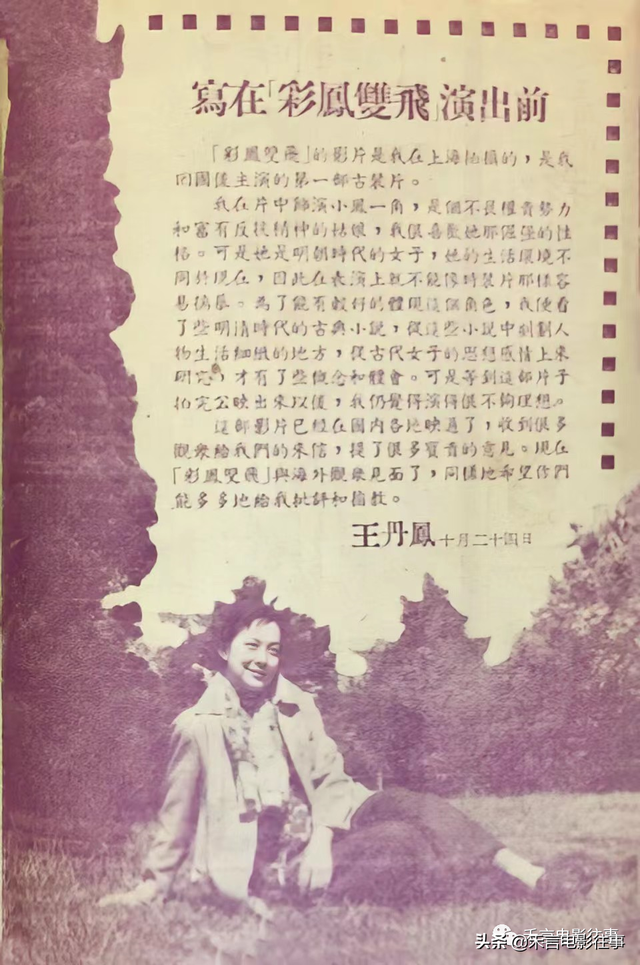 寫在「彩鳳雙飛」演出前
「彩鳳雙飛」的影片是我在上海拍攝的，是我
回國後主演的第一部古裝片。
我在片中飾演小鳳一角，是個不畏權貴勢力
和富有反抗精神的姑娘，我很喜歡她那倔强的性
格。可是她是明朝時代的女子，她的生活環境不
同於現在，因此在表演上就不能像時裝片那樣容
易描摹。為了能有較好的體現這個角色，我便看
了些明清時代的古典小說，從這些小說中刻劃人
物生活細緻的地方，從古代女子的思想感情上來
研究，才有了些概念和體會。可是等到這部片子
拍完公映出來以後，我仍覺得演得很不夠理想。
這部影片已經在國內各地映過了，收到很多
觀衆給我們的來信，提了很多寶貴的意見。現在
「彩鳳雙飛」與海外觀衆見面了，同樣地希望你們
能多多地給我批評和指教。
王丹鳳 十月二十四日
禾言电影往事
头条 @禾言电影往事